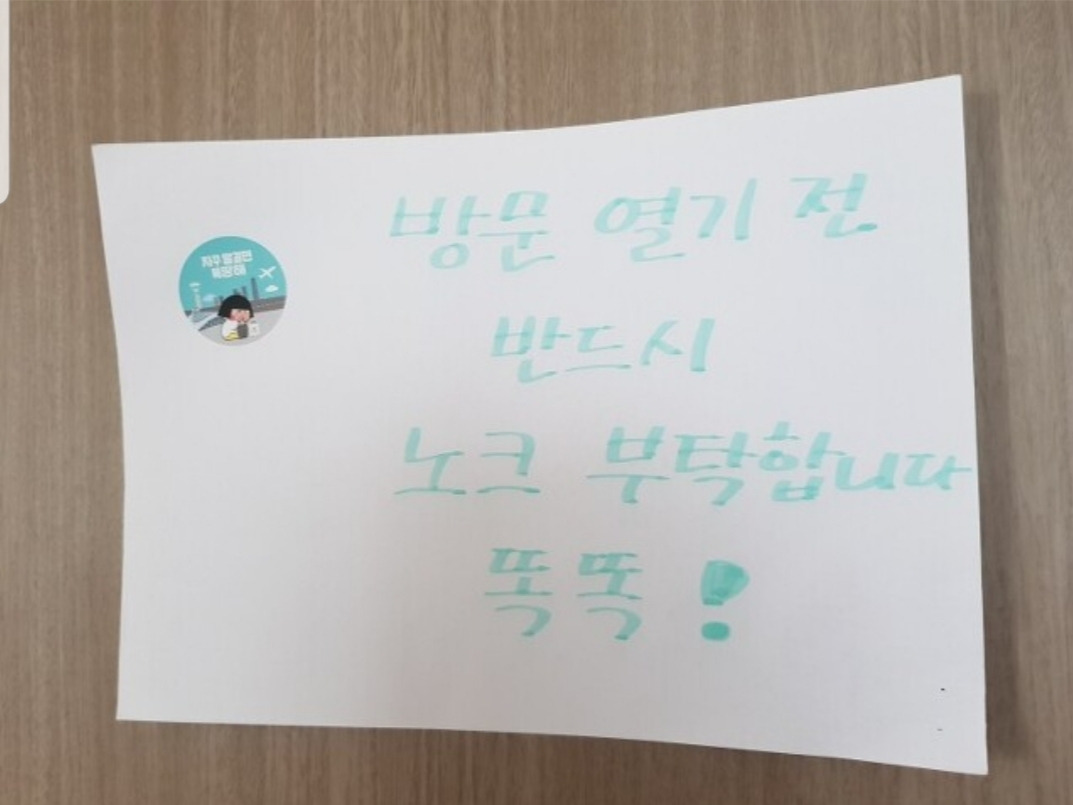 방문 열기 전
반드시
노크 부탁합니다
똑똑!